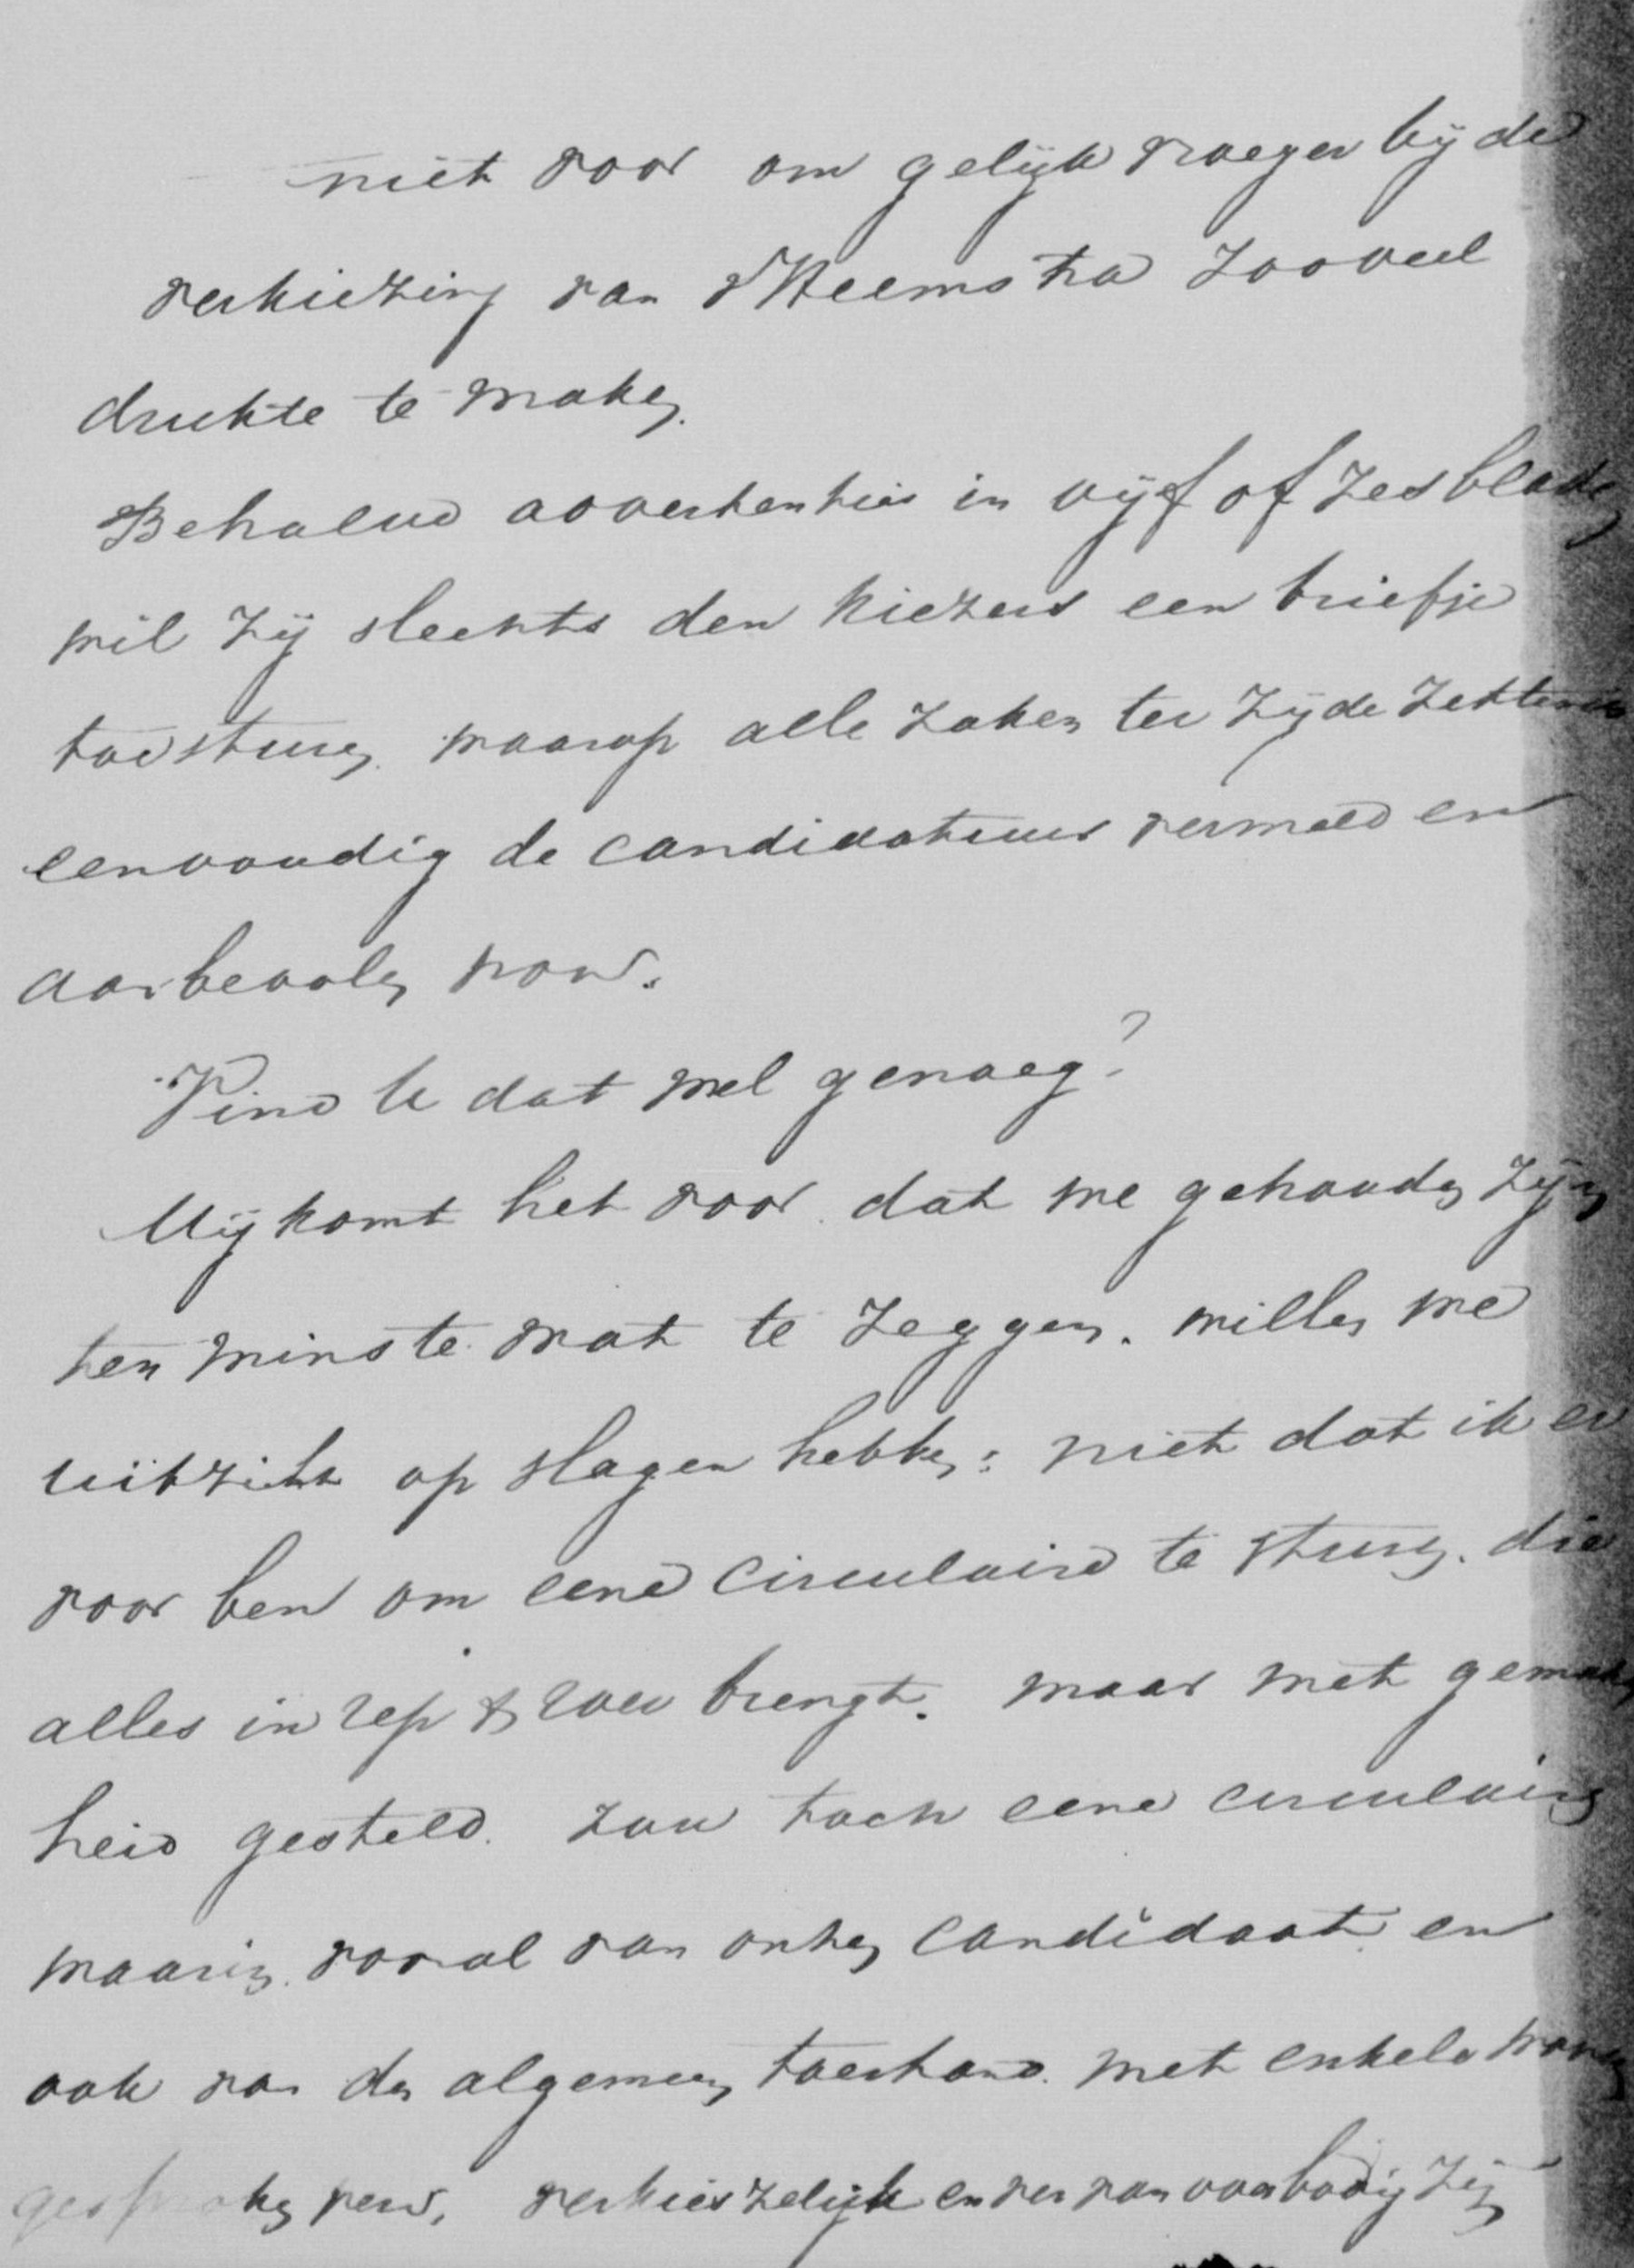 niet voor om gelijk vroeger bij de
verkiezing van v Heemstra zooveel
drukte te maken.
Behalve advertentiën in vijf of zes bladen
wil zij slechts den kiezers een briefje
toesturen waarop alle zaken ter zijde zettende
eenvoudig de candidatuur vermeld en
aanbevolen word.
Vind U dat wel genoeg?
Mij komt het voor dat we gehouden zijn
ten minste wat te zeggen. willen we
uitzicht op slagen hebben: niet dat ik er
voor ben om eene circulaire te sturen. die
alles in rep & roer brengt. maar met gematigd
heid gesteld. zou toch eene circulaire
waarin vooral van onzen candidaat en
ook van den algemeen toestand met enkele woorden
gesproken werd, verkieszelijk en ver van overbodig zijn